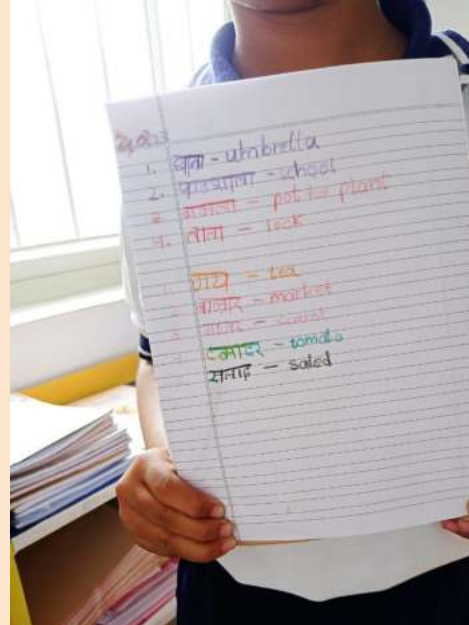 1. छाता - umbrella
2. पाठशाला - school
3. गमला - pot for plant
4. ताला - lock
1. चाय - tea
2. बाजार - market
3. गाजर - carrot
टमाटर - tomato
सलाद - salad